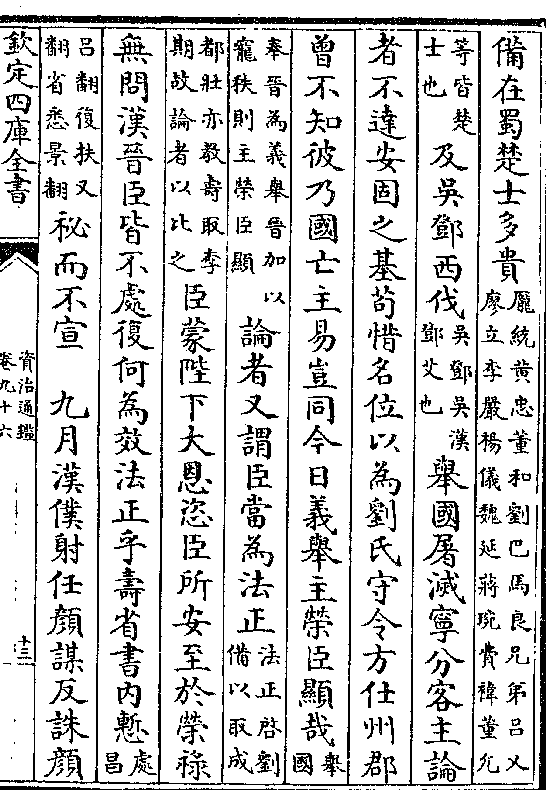 備在蜀楚士多貴龎統黄忠董和劉巴馬良兄弟吕乂廖立李嚴楊儀魏延蔣琬費禕董允
等皆楚士也及吳鄧西伐吳鄧吳漢鄧艾也舉國屠滅寧分客主論
者不達安固之基苟惜名位以為劉氏守令方仕州郡
曾不知彼乃國亡主易豈同今日義舉主榮臣顯哉舉國
奉晉為義舉晉加以寵秩則主榮臣顯論者又謂臣當為法正法正啓劉備以取成
都壯亦教壽取李期故論者以比之臣蒙陛下大恩恣臣所安至於榮祿
無問漢晉臣皆不處復何為效法正乎壽省書内慙處昌
吕翻復扶又翻省悉景翻秘而不宣　九月漢僕射任顔謀反誅顔
欽定四庫全書
資治通鑑
卷九十六
十三